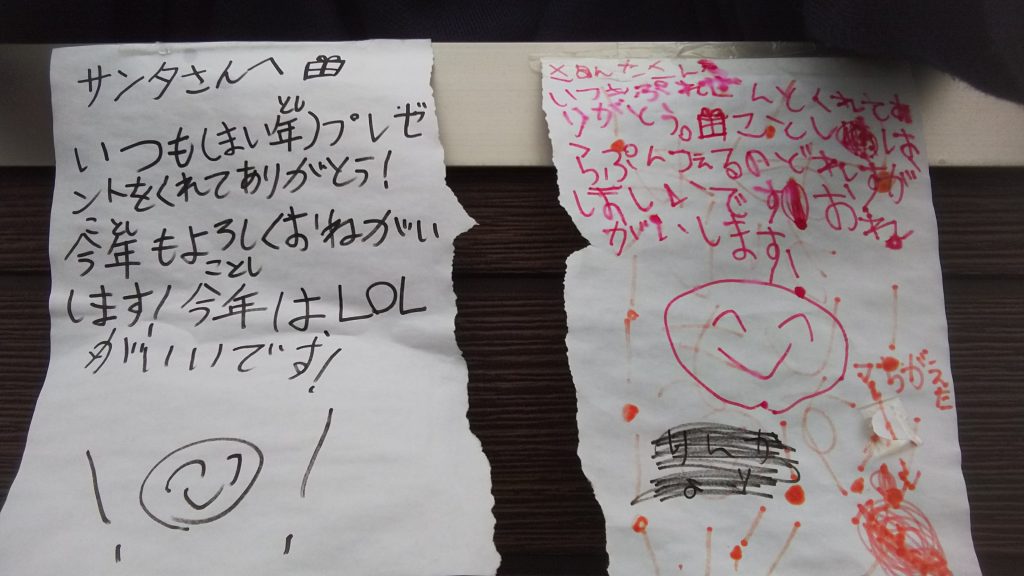 サンタさんへ
とし
いつも(まい年)プレゼ
ントをくれてありがとう!
ことし
今年もよろしくおねがい
ことし
します!今年はLOL
がいいです!
さんたさんへ
いつもぷれぜんとくれてあ
りがとう。ことしは
らぷんつぇるのどれすが
ほしいです おね
がいします!
まちがえた